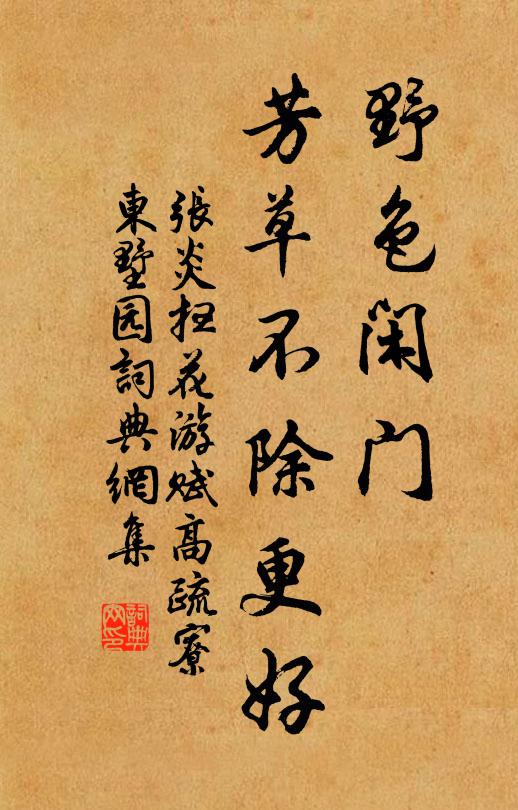 野色闲门
芳草不除更好
張炎扫花游赋高疏寮
東墅园詞典網集
詞典
网印